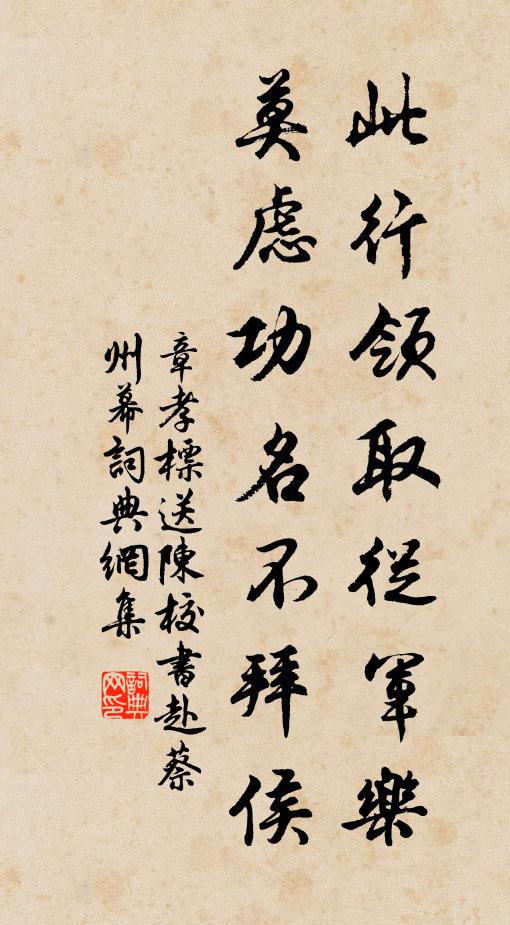 此行領取從軍樂
莫慮功名不拜侯
章孝標送陳校書赴蔡
州幕詞典網集
詞典網印